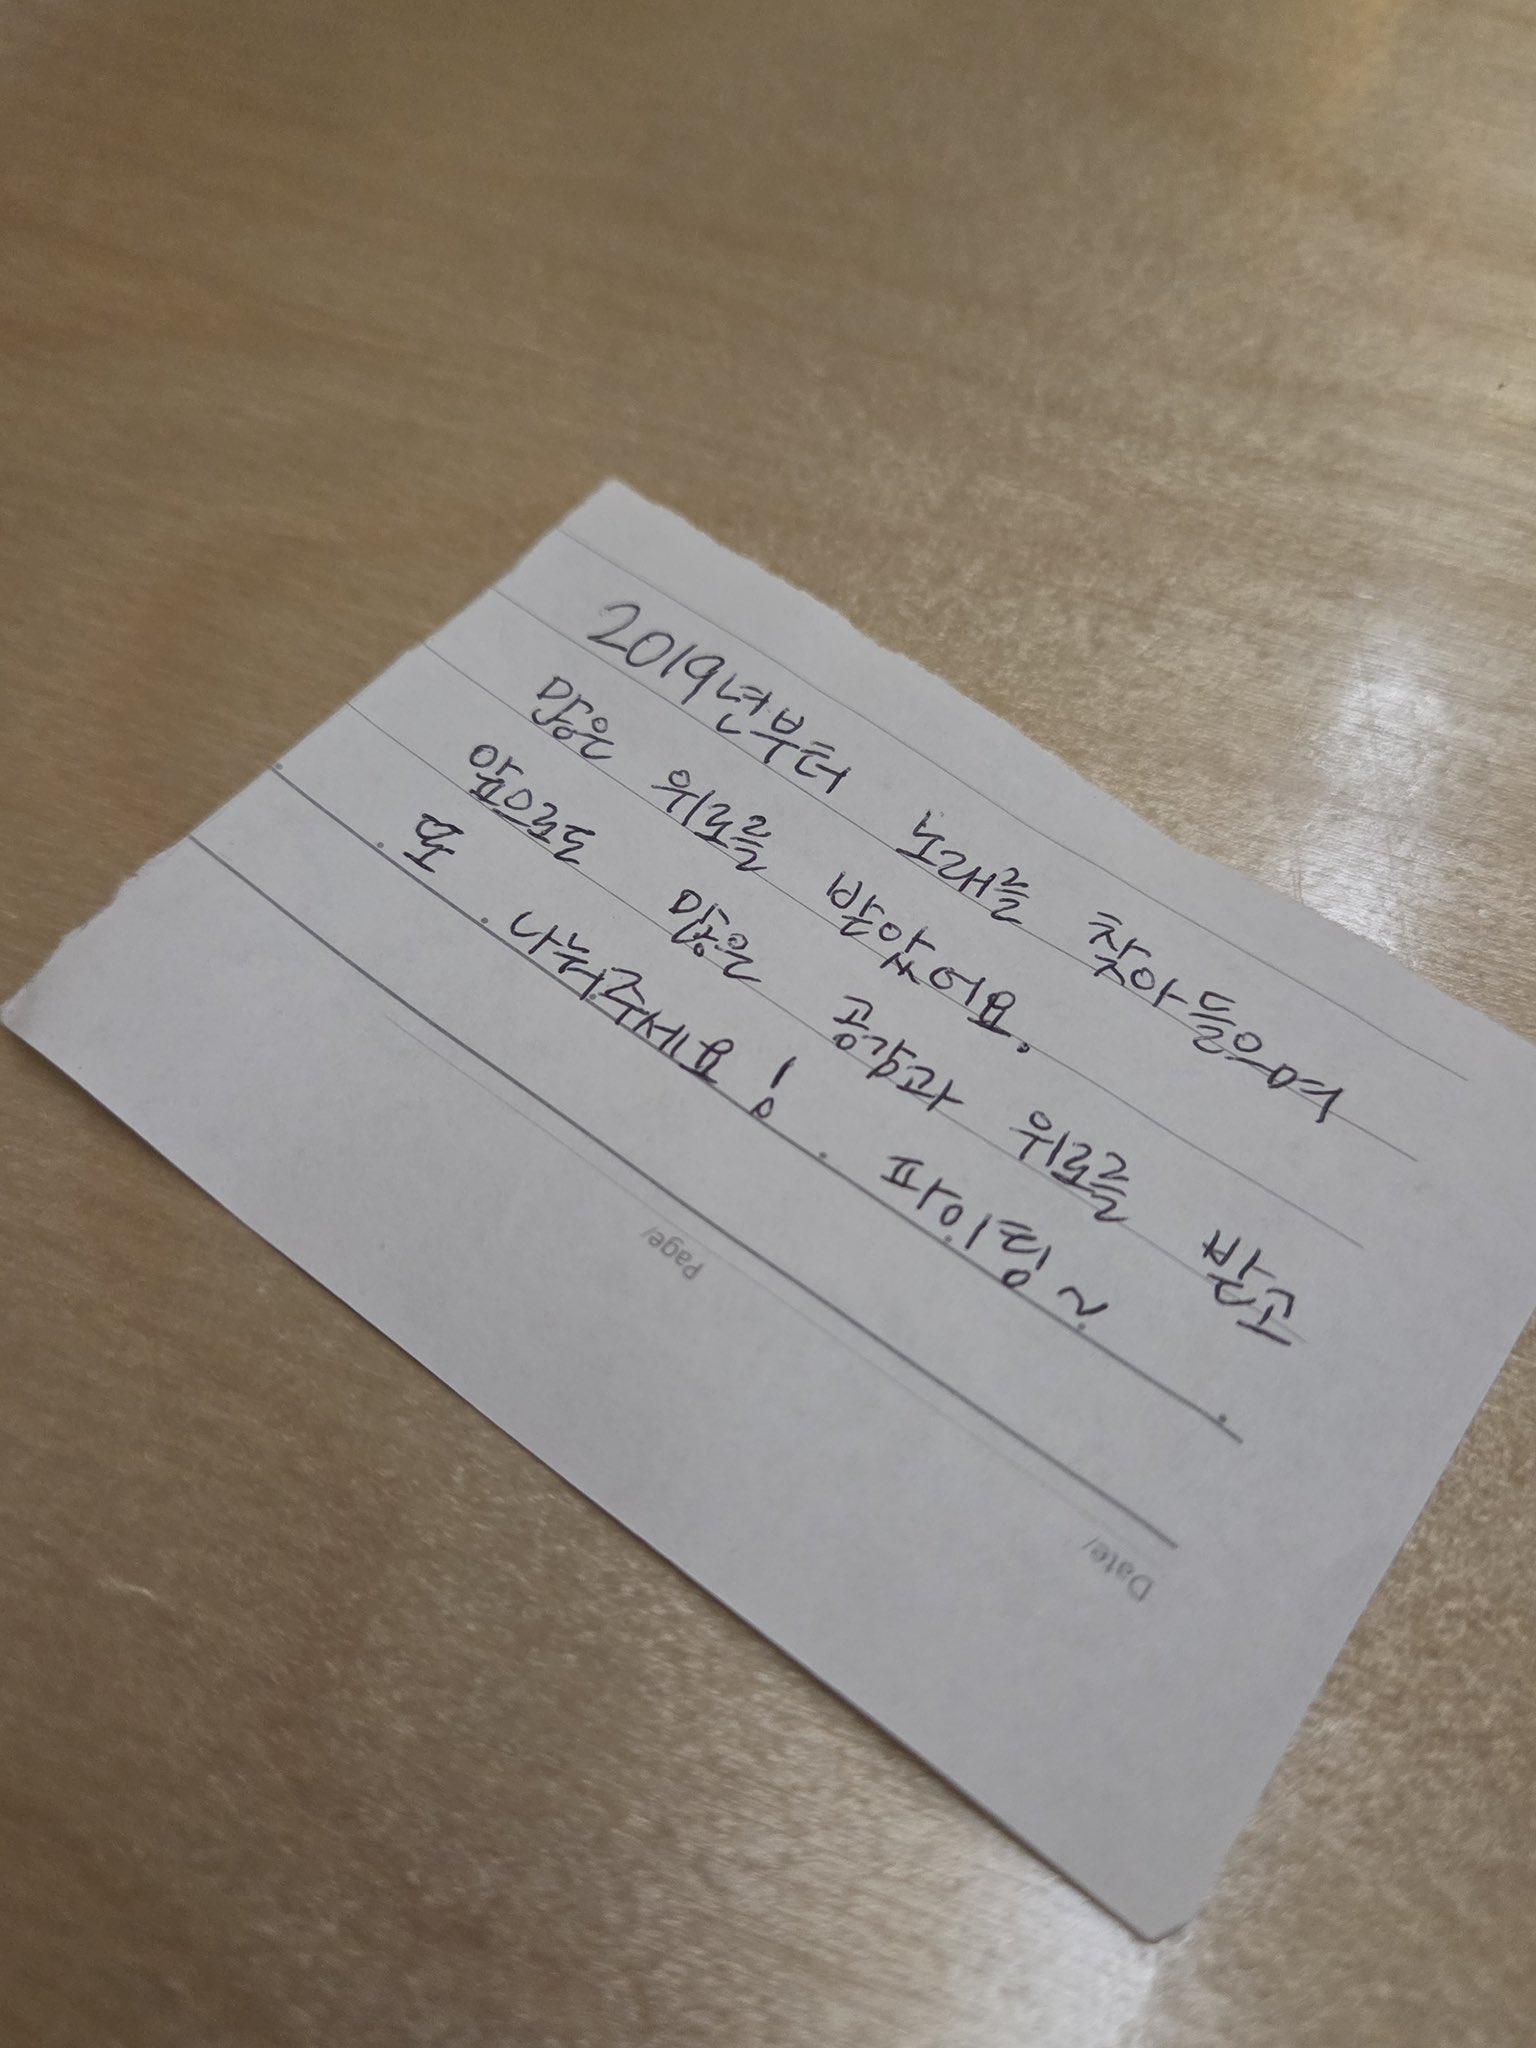 2019년부터 노래를 찾아들으며
많은 위로를 받았어요.
앞으로도 많은 공감과 위로를 받고
또 나눠주세요! 파이팅~
Page/
Date/